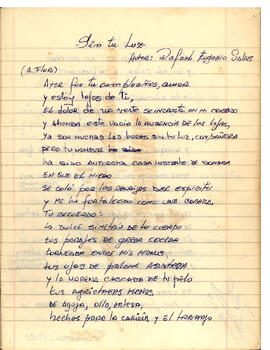 Sin tu Luz
Autor: Rafael Eugenio Salas
(A Flor):
Ayer fue tu cumpleaños, amor
y estoy lejos de ti,
El dolor de no verte se incrusta en mi costado
y ahonda este vacío la ausencia de los hijos,
Ya son muchas las horas sin tu luz, compañera
pero tu nombre
ha sido autorcha cada instante de sombra
En que el miedo
se coló por las rendijas del espíritu
y me ha fortalecido como una coraza,
Tu recuerdo:
La dulce simetría de tu cuerpo
tus parajes de greda cocida
torneada entre mis manos
tus ojos de paloma asustada
y la morena cascada de tu pelo
tus agrietadas manos
de aguja, olla, artesa,
hechas para la caricia y el trabajo